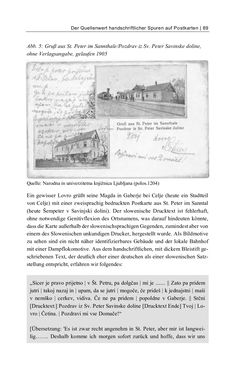 Der Quellenwert handschriftlicher Spuren auf Postkarten | 89
Abb. 5: Gruß aus St. Peter im Sannthale/Pozdrav iz Sv. Peter Savinske doline,
ohne Verlagsangabe, gelaufen 1905
Gruß aus St. Peter im Sannthale
Pozdrav iz St. Peter Savinske doline
Quelle: Narodna in univerzitetna knjižnica Ljubljana (polos.1204)
Ein gewisser Lovro grüßt seine Magda in Gaberje (heute ein Stadtteil
von Celje) mit einer zweisprachig bedruckten Postkarte aus St. Peter im Sanntal
(heute Šempeter v Savinjski dolini). Der slowenische Drucktext ist fehlerhaft,
ohne notwendige Genitivflexion des Ortsnamens, was darauf hindeuten könnte,
dass die Karte außerhalb der slowenischsprachigen Gegenden, zumindest aber von
einem des Slowenischen unkundigen Drucker, hergestellt wurde. Als Bildmotive
zu sehen sind ein nicht näher identifizierbares Gebäude und der lokale Bahnhof
mit einer Dampflokomotive. Aus dem handschriftlichen, mit dickem Bleistift ge-
schriebenen Text, der deutlich eher einem deutschen als einer slowenischen Satz-
stellung entspricht, erfahren wir folgendes:
„Sicer je pravo prijetno | v Št. Petru, pa dolgčas | mi je ...... || Zato pa pridem
jutri | takoj nazaj in | upam, da se jutri | mogoče, če prideš | k jednajsti | mali
v nemško | cerkev, vidiva. Če ne pridem | pa | popoldne v Gaberje. || Srčni
[Drucktext] Pozdrav iz St. Peter Savinske doline [Drucktext Ende] Tvoj | Lo-
vro | Četina. | Pozdravi mi vse Domače!"
[Übersetzung: Es ist zwar recht angenehm in St. Peter, aber mir ist langwei-
lig....... Deshalb komme ich morgen sofort zurück und hoffe, dass wir uns